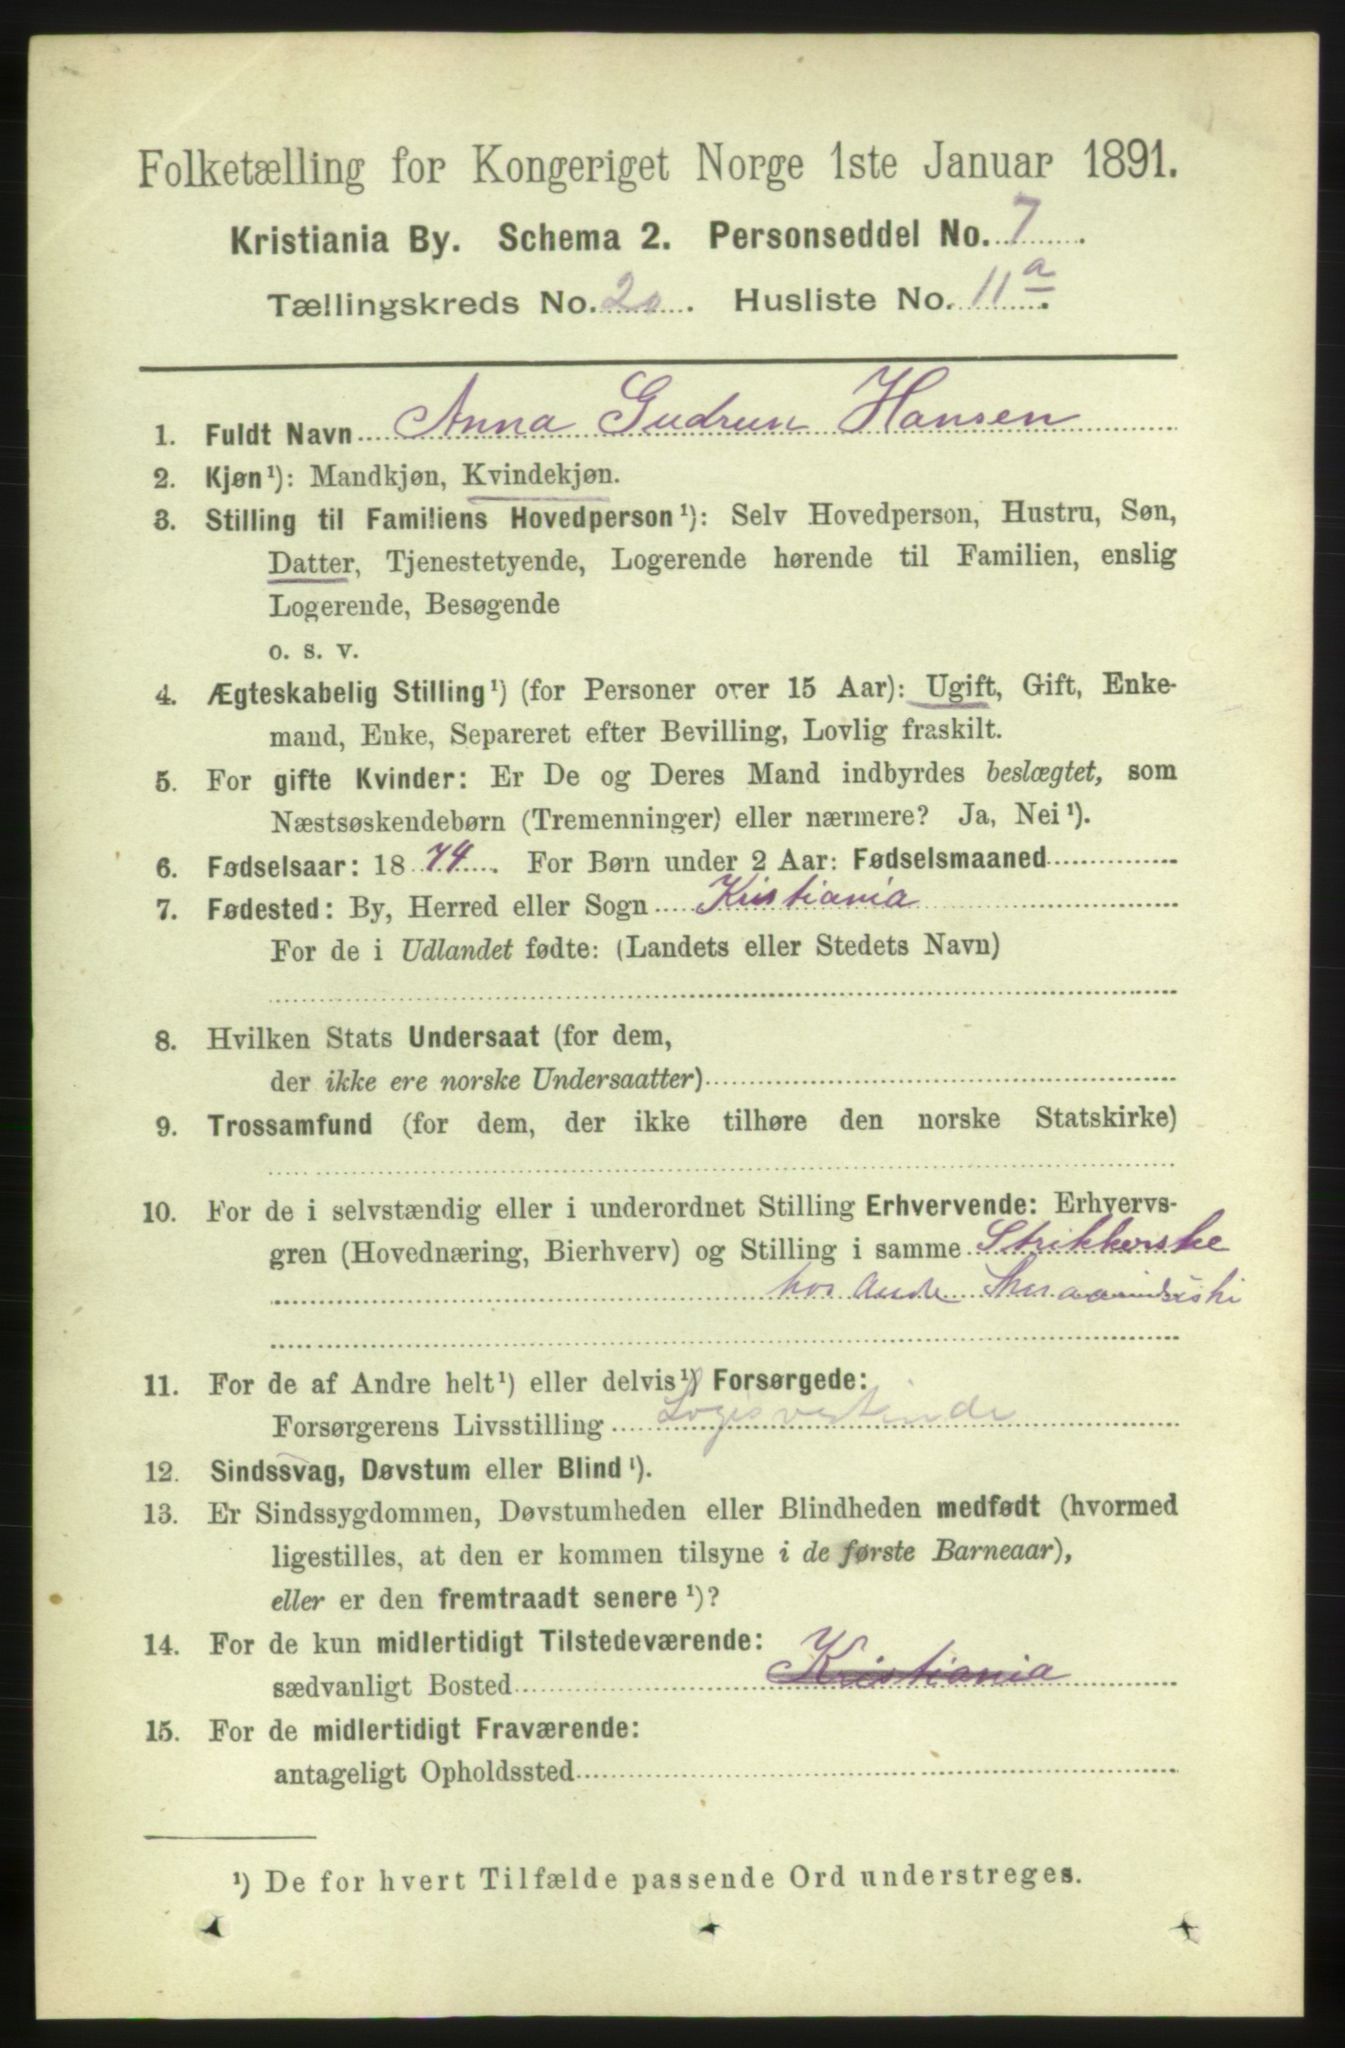 Folketælling for Kongeriget Norge 1ste Januar 1891.
Kristiania By. Schema 2. Personseddel No. 7
Tællingskreds No. 20. Husliste No. 11a.
1. Fuldt Navn Anna Gudrun Hansen
2. Kjøn¹): Mandkjøn, Kvindekjøn.
3. Stilling til Familiens Hovedperson¹): Selv Hovedperson, Hustru, Søn,
Datter, Tjenestetyende, Logerende hørende til Familien, enslig
Logerende, Besøgende
o. s. v.
4. Ægteskabelig Stilling¹) (for Personer over 15 Aar): Ugift, Gift, Enke-
mand, Enke, Separeret efter Bevilling, Lovlig fraskilt.
5. For gifte Kvinder: Er De og Deres Mand indbyrdes beslægtet, som
Næstsøskendebørn (Tremenninger) eller nærmere? Ja, Nei¹).
6. Fødselsaar: 1874. For Børn under 2 Aar: Fødselsmaaned
7. Fødested: By, Herred eller Sogn Kristiania
For de i Udlandet fødte: (Landets eller Stedets Navn)
8. Hvilken Stats Undersaat (for dem,
der ikke ere norske Undersaatter)
9. Trossamfund (for dem, der ikke tilhøre den norske Statskirke)
10. For de i selvstændig eller i underordnet Stilling Erhvervende: Erhvervs-
gren (Hovednæring, Bierhverv) og Stilling i samme Strikkerske
hos
11. For de af Andre helt¹) eller delvis¹) Forsørgede:
Forsørgerens Livsstilling Logisvertinde
12. Sindssvag, Døvstum eller Blind¹).
13. Er Sindssygdommen, Døvstumheden eller Blindheden medfødt (hvormed
ligestilles, at den er kommen tilsyne i de første Barneaar),
eller er den fremtraadt senere¹)?
14. For de kun midlertidigt Tilstedeværende:
sædvanligt Bosted Kristiania
15. For de midlertidigt Fraværende:
antageligt Opholdssted
¹) De for hvert Tilfælde passende Ord understreges.